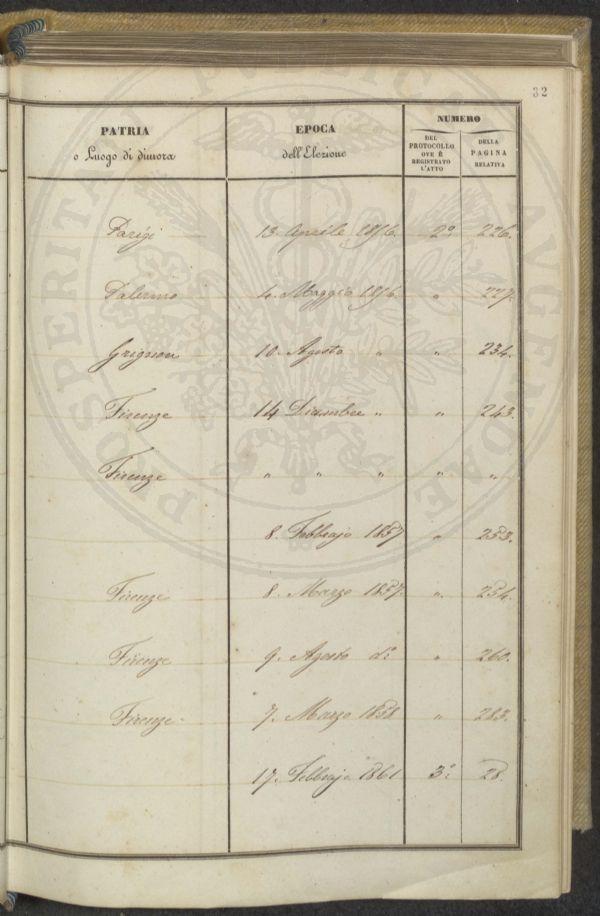 32
PATRIA
o Luogo di dimora
EPOCA
dell'Elezione
NUMERO
DEL
PROTOCOLLO
OVE È
REGISTRATO
L'ATTO
DELLA
PAGINA
RELATIVA
Parigi 13. Aprile 1856. 2º 226.
Palermo 4. Maggio 1856. " 227.
Grignon 10. Agosto " " 234.
Firenze 14 Dicembre " " 243.
Firenze " " " " "
8. Febbrajo 1857 " 253.
Firenze 8. Marzo 1857. " 254.
Firenze 9. Agosto dº " 260.
Firenze 7. Marzo 1858 " 283.
17. Febbrajo 1861 3º 28.
PROSPERITATI PUBLICAE AUGENDAE